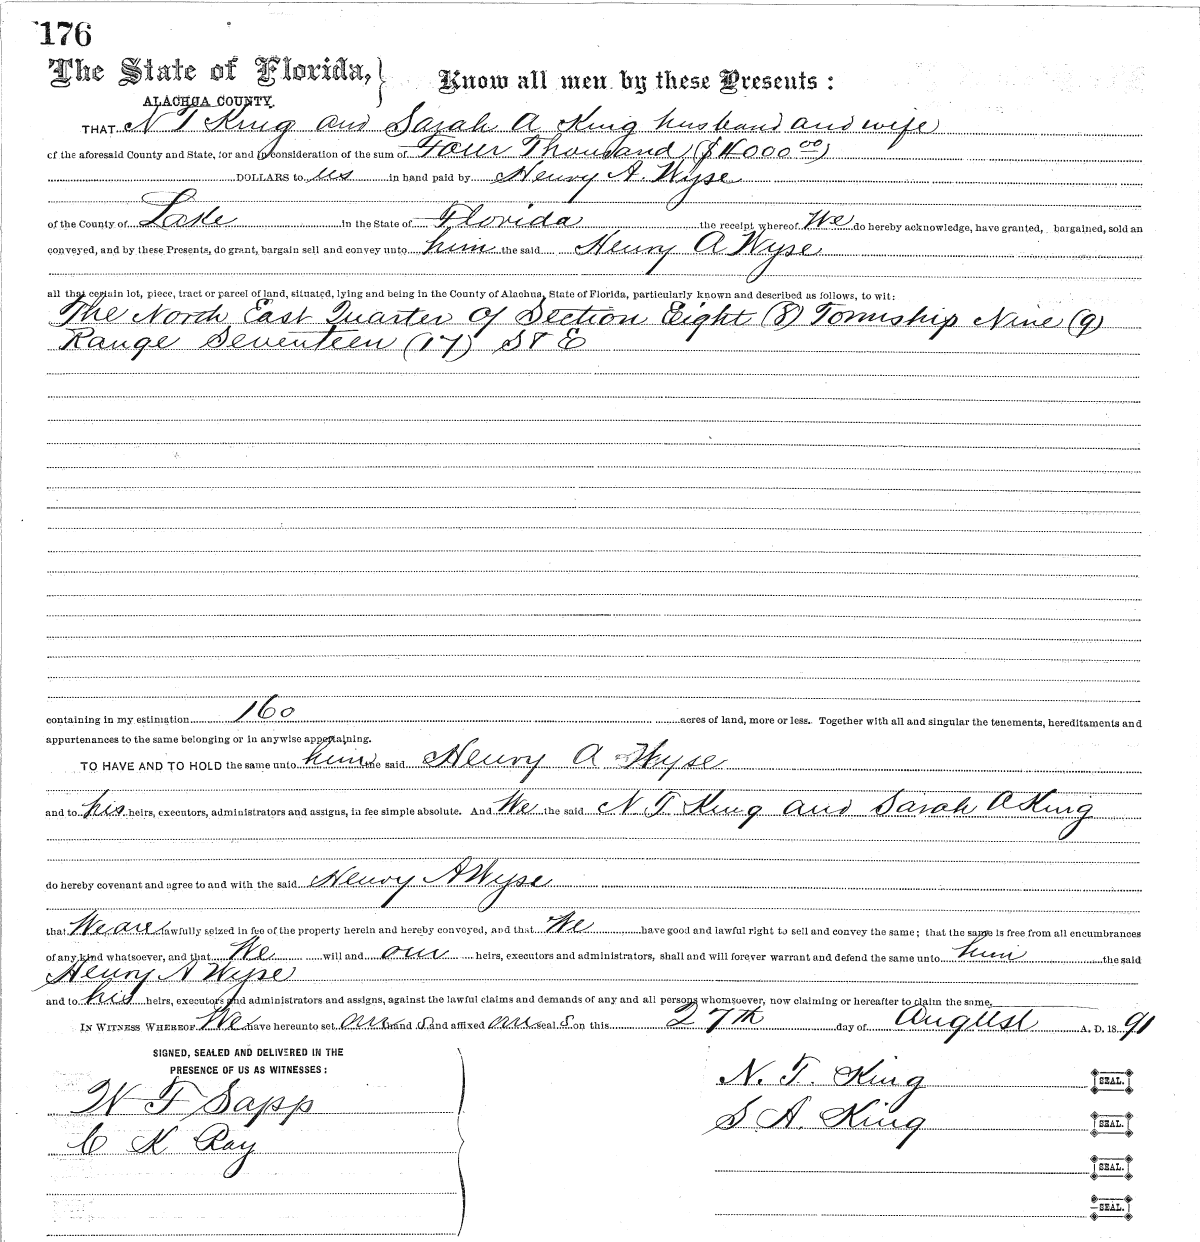 176
The State of Florida, } Know all men by these Presents :
ALACHUA COUNTY.
THAT N T King and Sarah A King husband and wife
of the aforesaid County and State, for and in consideration of the sum of Four Thousand ($4000 00)
DOLLARS to us in hand paid by Henry A. Wyse
of the County of Lake in the State of Florida the receipt whereof We do hereby acknowledge, have granted, bargained, sold an
conveyed, and by these Presents, do grant, bargain sell and convey unto him the said Henry A Wyse
all that certain lot, piece, tract or parcel of land, situated, lying and being in the County of Alachua, State of Florida, particularly known and described as follows, to wit:
The North East Quarter of Section Eight (8) Township Nine (9)
Range Seventeen (17) S & E
containing in my estimation 160 acres of land, more or less. Together with all and singular the tenements, hereditaments and
appurtenances to the same belonging or in anywise appertaining.
TO HAVE AND TO HOLD the same unto him the said Henry A Wyse
and to his heirs, executors, administrators and assigns, in fee simple absolute. And We the said N T King and Sarah A King
do hereby covenant and agree to and with the said Henry A Wyse
that We are lawfully seized in fee of the property herein and hereby conveyed, and that We have good and lawful right to sell and convey the same; that the same is free from all encumbrances
of any kind whatsoever, and that We will and our heirs, executors and administrators, shall and will forever warrant and defend the same unto him the said
Henry A Wyse
and to his heirs, executors and administrators and assigns, against the lawful claims and demands of any and all persons whomsoever, now claiming or hereafter to claim the same.
IN WITNESS WHEREOF We have hereunto set our hand s and affixed our seal s on this 27th day of August A. D. 18 91
SIGNED, SEALED AND DELIVERED IN THE
PRESENCE OF US AS WITNESSES :
W T Sapp
C K Ray
N. T. King SEAL.
S A. King SEAL.
SEAL.
SEAL.